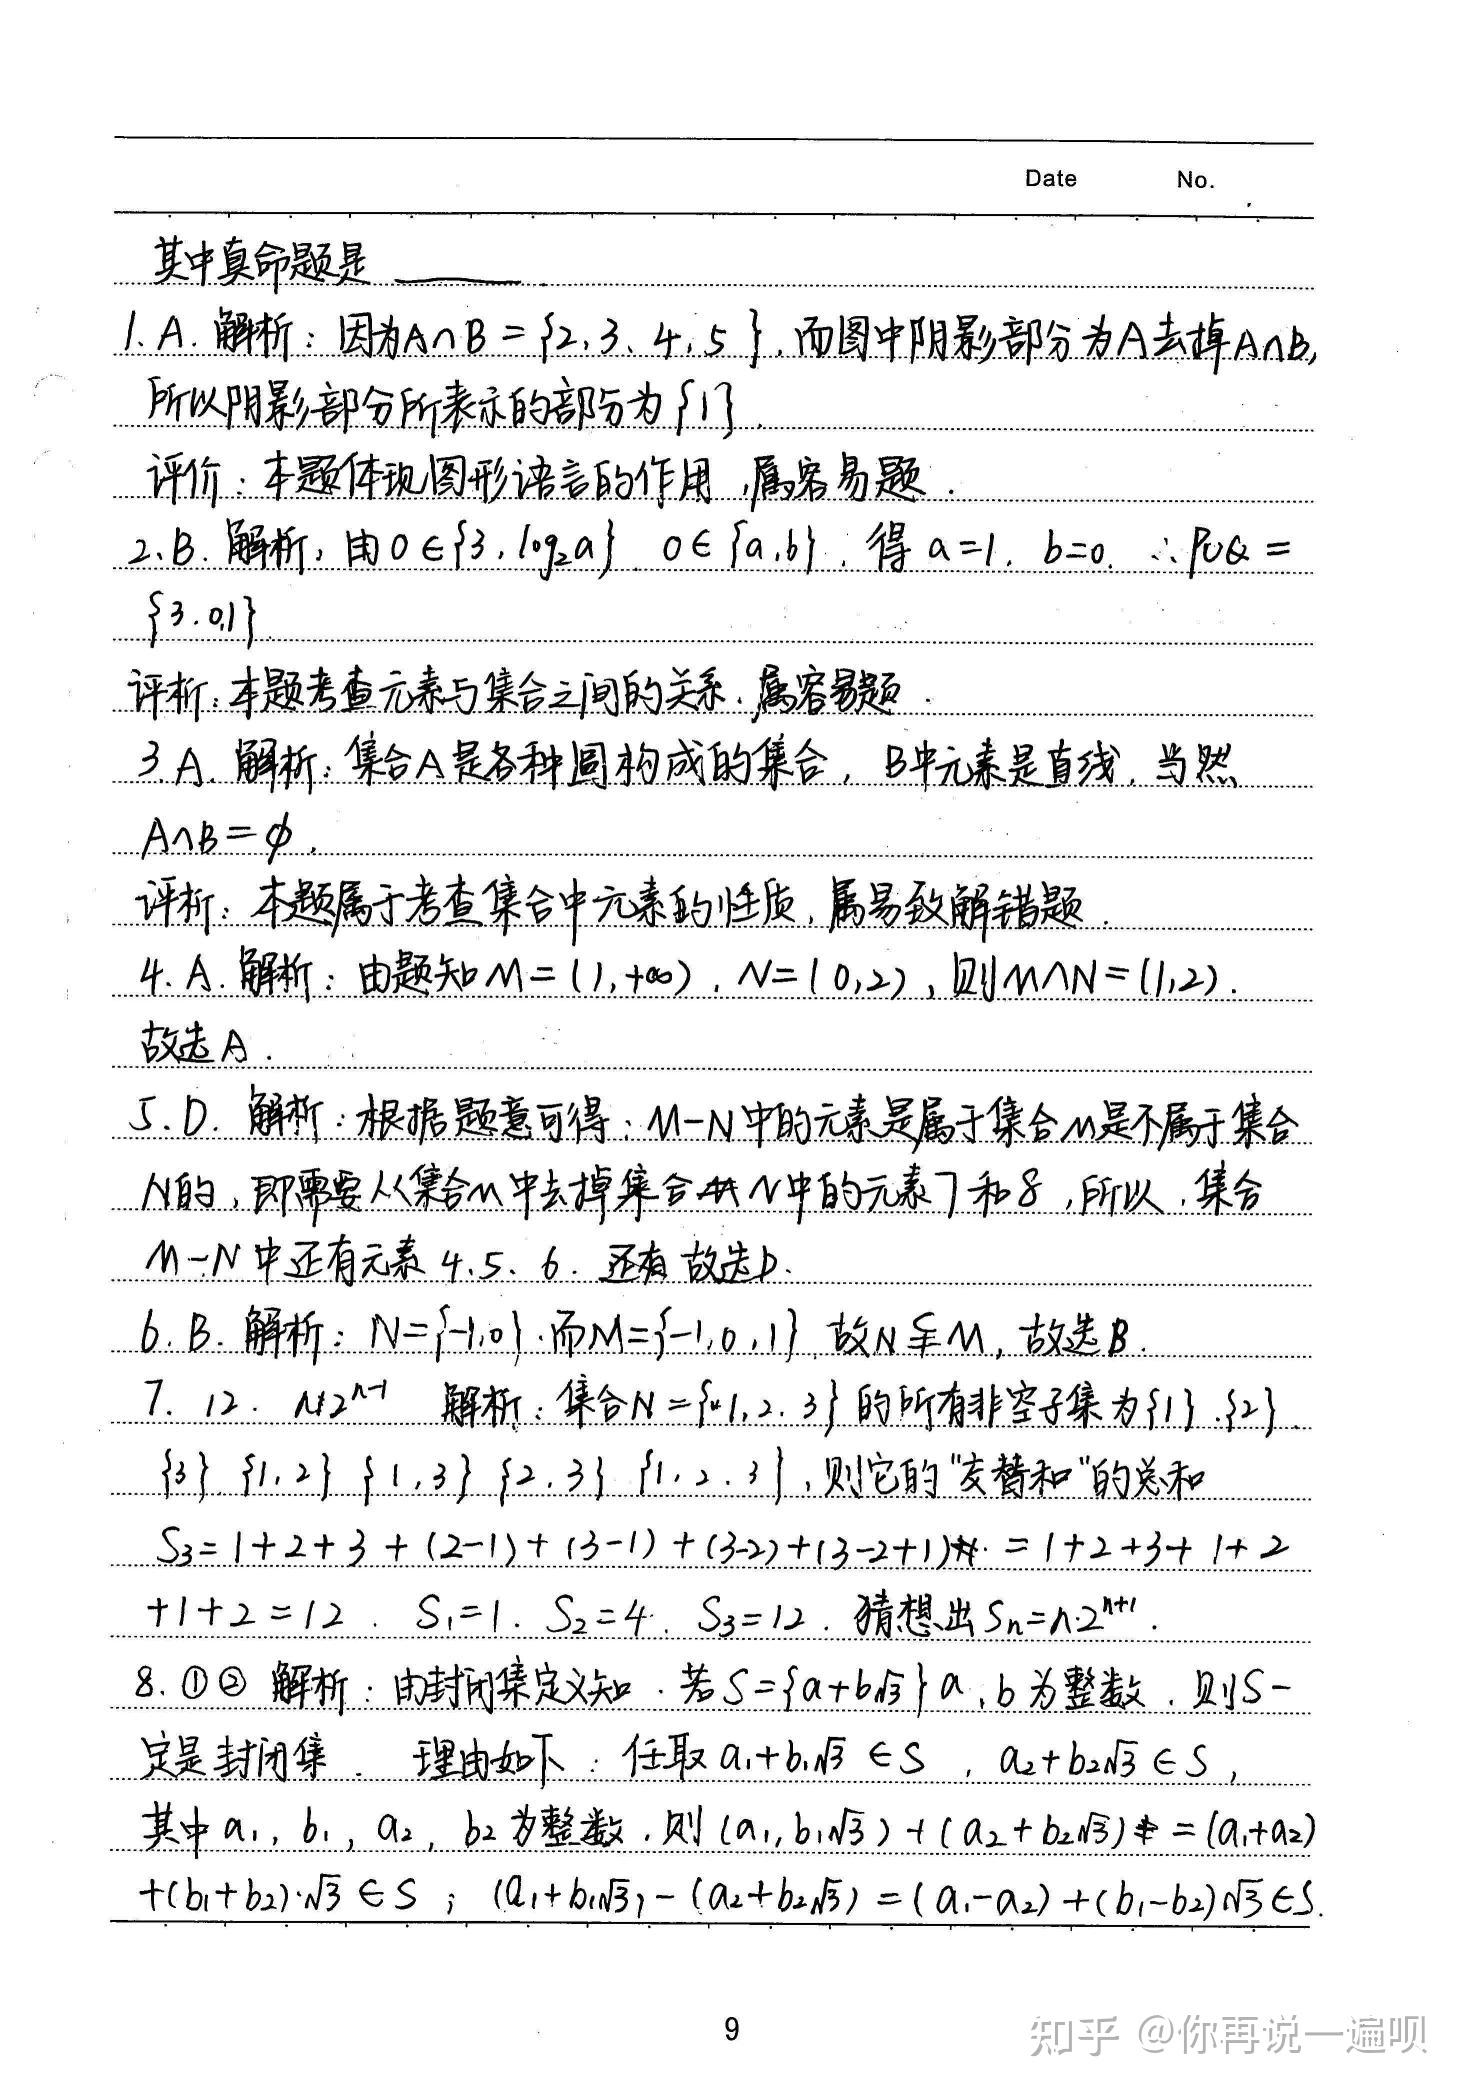 Date No.
其中真命题是
1. A. 解析：因为A∩B={2,3、4,5}，而图中阴影部分为A去掉A∩B,
所以阴影部分所表示的部分为{1}.
评价：本题体现图形语言的作用,属容易题.
2、B. 解析，由0∈{3, log₂a} 0∈{a,b}，得 a=1, b=0. ∴P∪Q=
{3.0,1}
评析：本题考查元素与集合之间的关系，属容易题.
3.A. 解析：集合A是各种圆构成的集合，B中元素是直线，当然
A∩B=∅.
评析：本题属于考查集合中元素的性质，属易致解错题.
4. A. 解析：由题知M=(1,+∞), N=(0,2), 则M∩N=(1,2).
故选A.
5.D. 解析：根据题意可得：M-N中的元素是属于集合M是不属于集合
N的，即需要从集合M中去掉集合N中的元素7和8，所以，集合
M-N中还有元素4.5、6. 还有 故选D.
6. B. 解析：N={-1,0}.而M={-1,0,1}.故N⫋M，故选B.
7. 12. n·2ⁿ⁻¹ 解析：集合N={1,2.3}的所有非空子集为{1}.{2}.
{3} {1,2} {1,3} {2.3} {1.2.3}，则它的"交替和"的总和
S₃=1+2+3+(2-1)+(3-1)+(3-2)+(3-2+1)=1+2+3+1+2
+1+2=12. S₁=1. S₂=4. S₃=12. 猜想出Sₙ=n·2ⁿ⁺¹.
8. ①② 解析：由封闭集定义知.若S={a+b√3}a,b为整数，则S一
定是封闭集. 理由如下：任取a₁+b₁√3∈S, a₂+b₂√3∈S,
其中a₁, b₁, a₂, b₂为整数，则(a₁,b₁√3)+(a₂+b₂√3)=(a₁+a₂)
+(b₁+b₂)·√3∈S；(a₁+b₁√3)-(a₂+b₂√3)=(a₁-a₂)+(b₁-b₂)√3∈S.
9
知乎 @你再说一遍呗